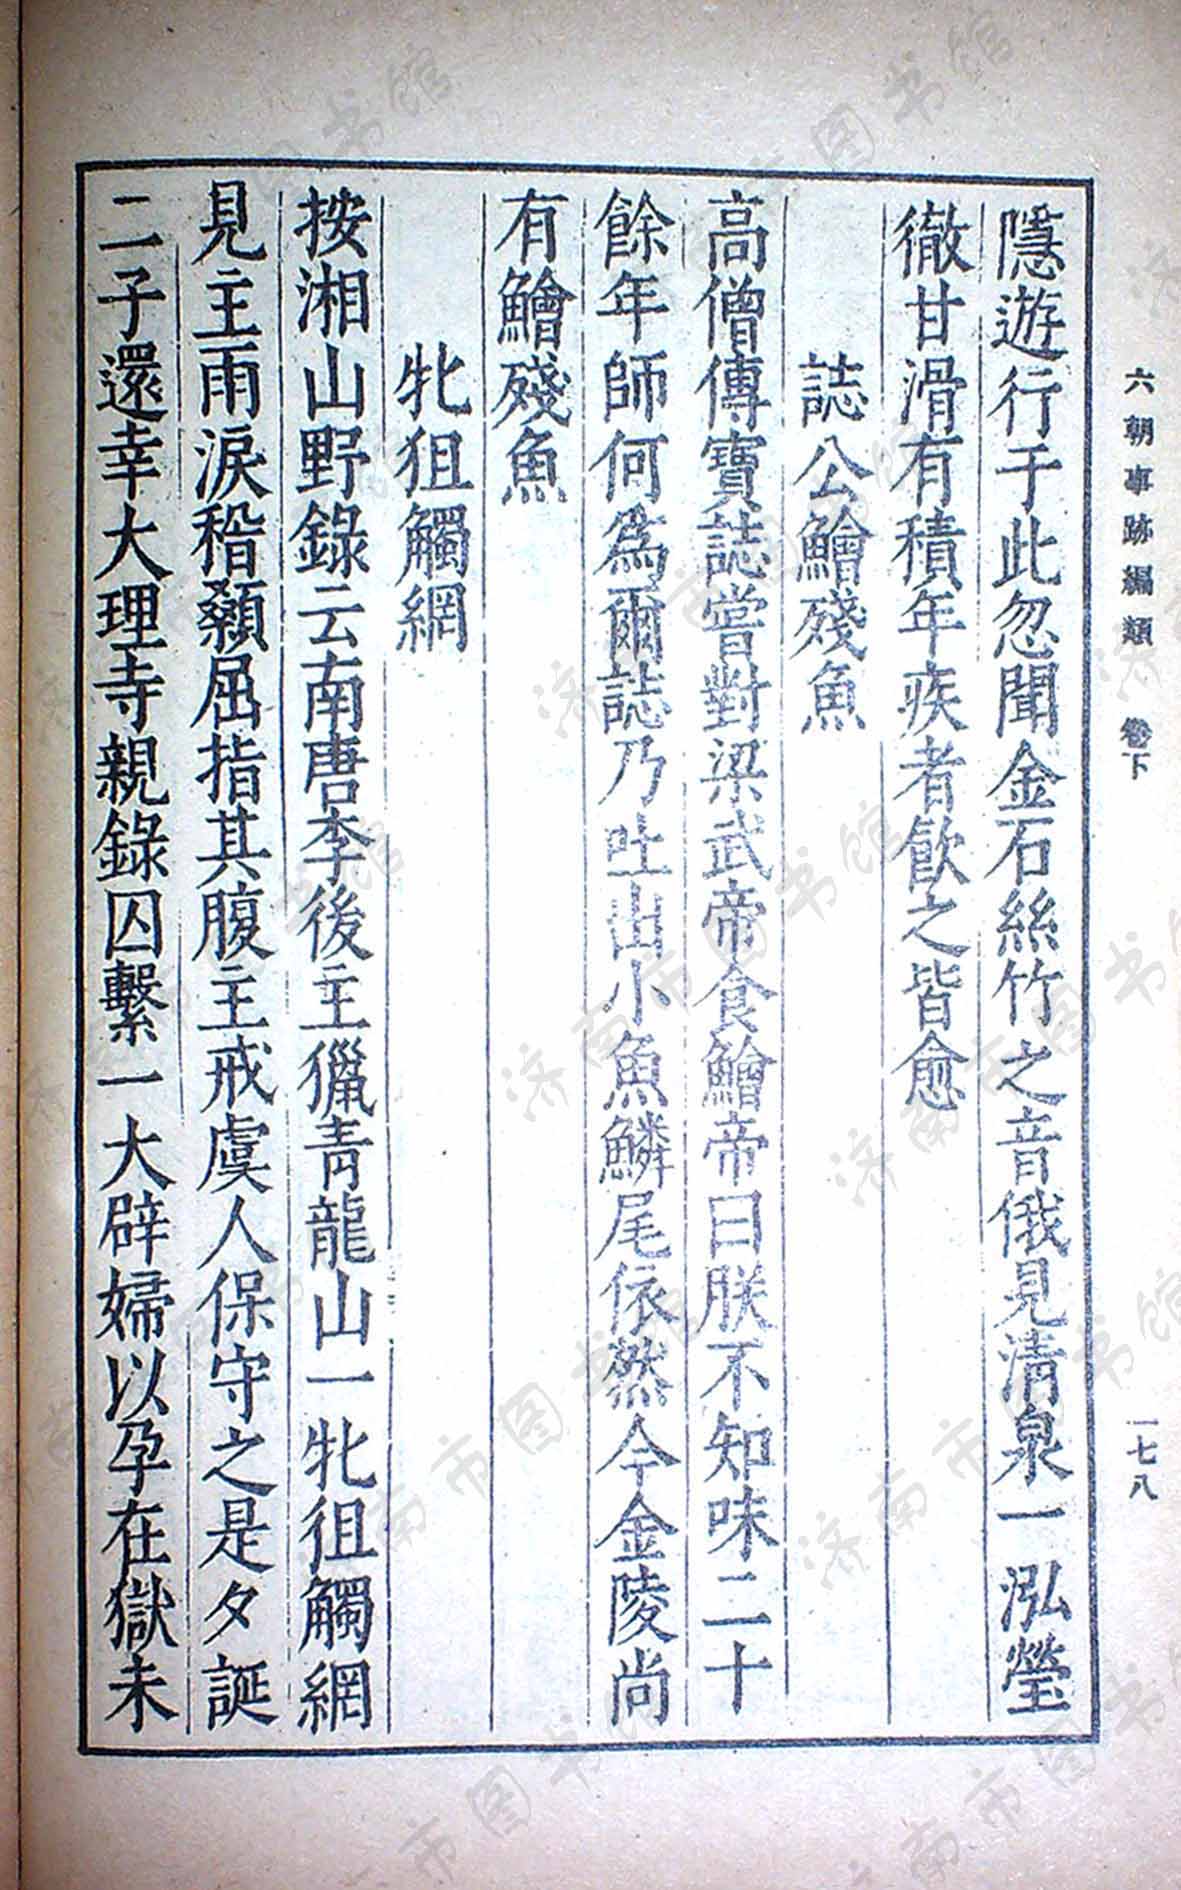 六朝事跡編類 卷下 一七八
隱遊行于此忽聞金石絲竹之音俄見清泉一泓瑩
徹甘滑有積年疾者飲之皆愈
誌公鱠殘魚
高僧傳寶誌嘗對梁武帝食鱠帝曰朕不知味二十
餘年師何為爾誌乃吐出小魚鱗尾依然今金陵尚
有鱠殘魚
牝狙觸網
按湘山野錄云南唐李後主獵青龍山一牝狙觸網
見主雨淚稽顙屈指其腹主戒虞人保守之是夕誕
二子還幸大理寺親錄囚繫一大辟婦以孕在獄未
济南市图书馆